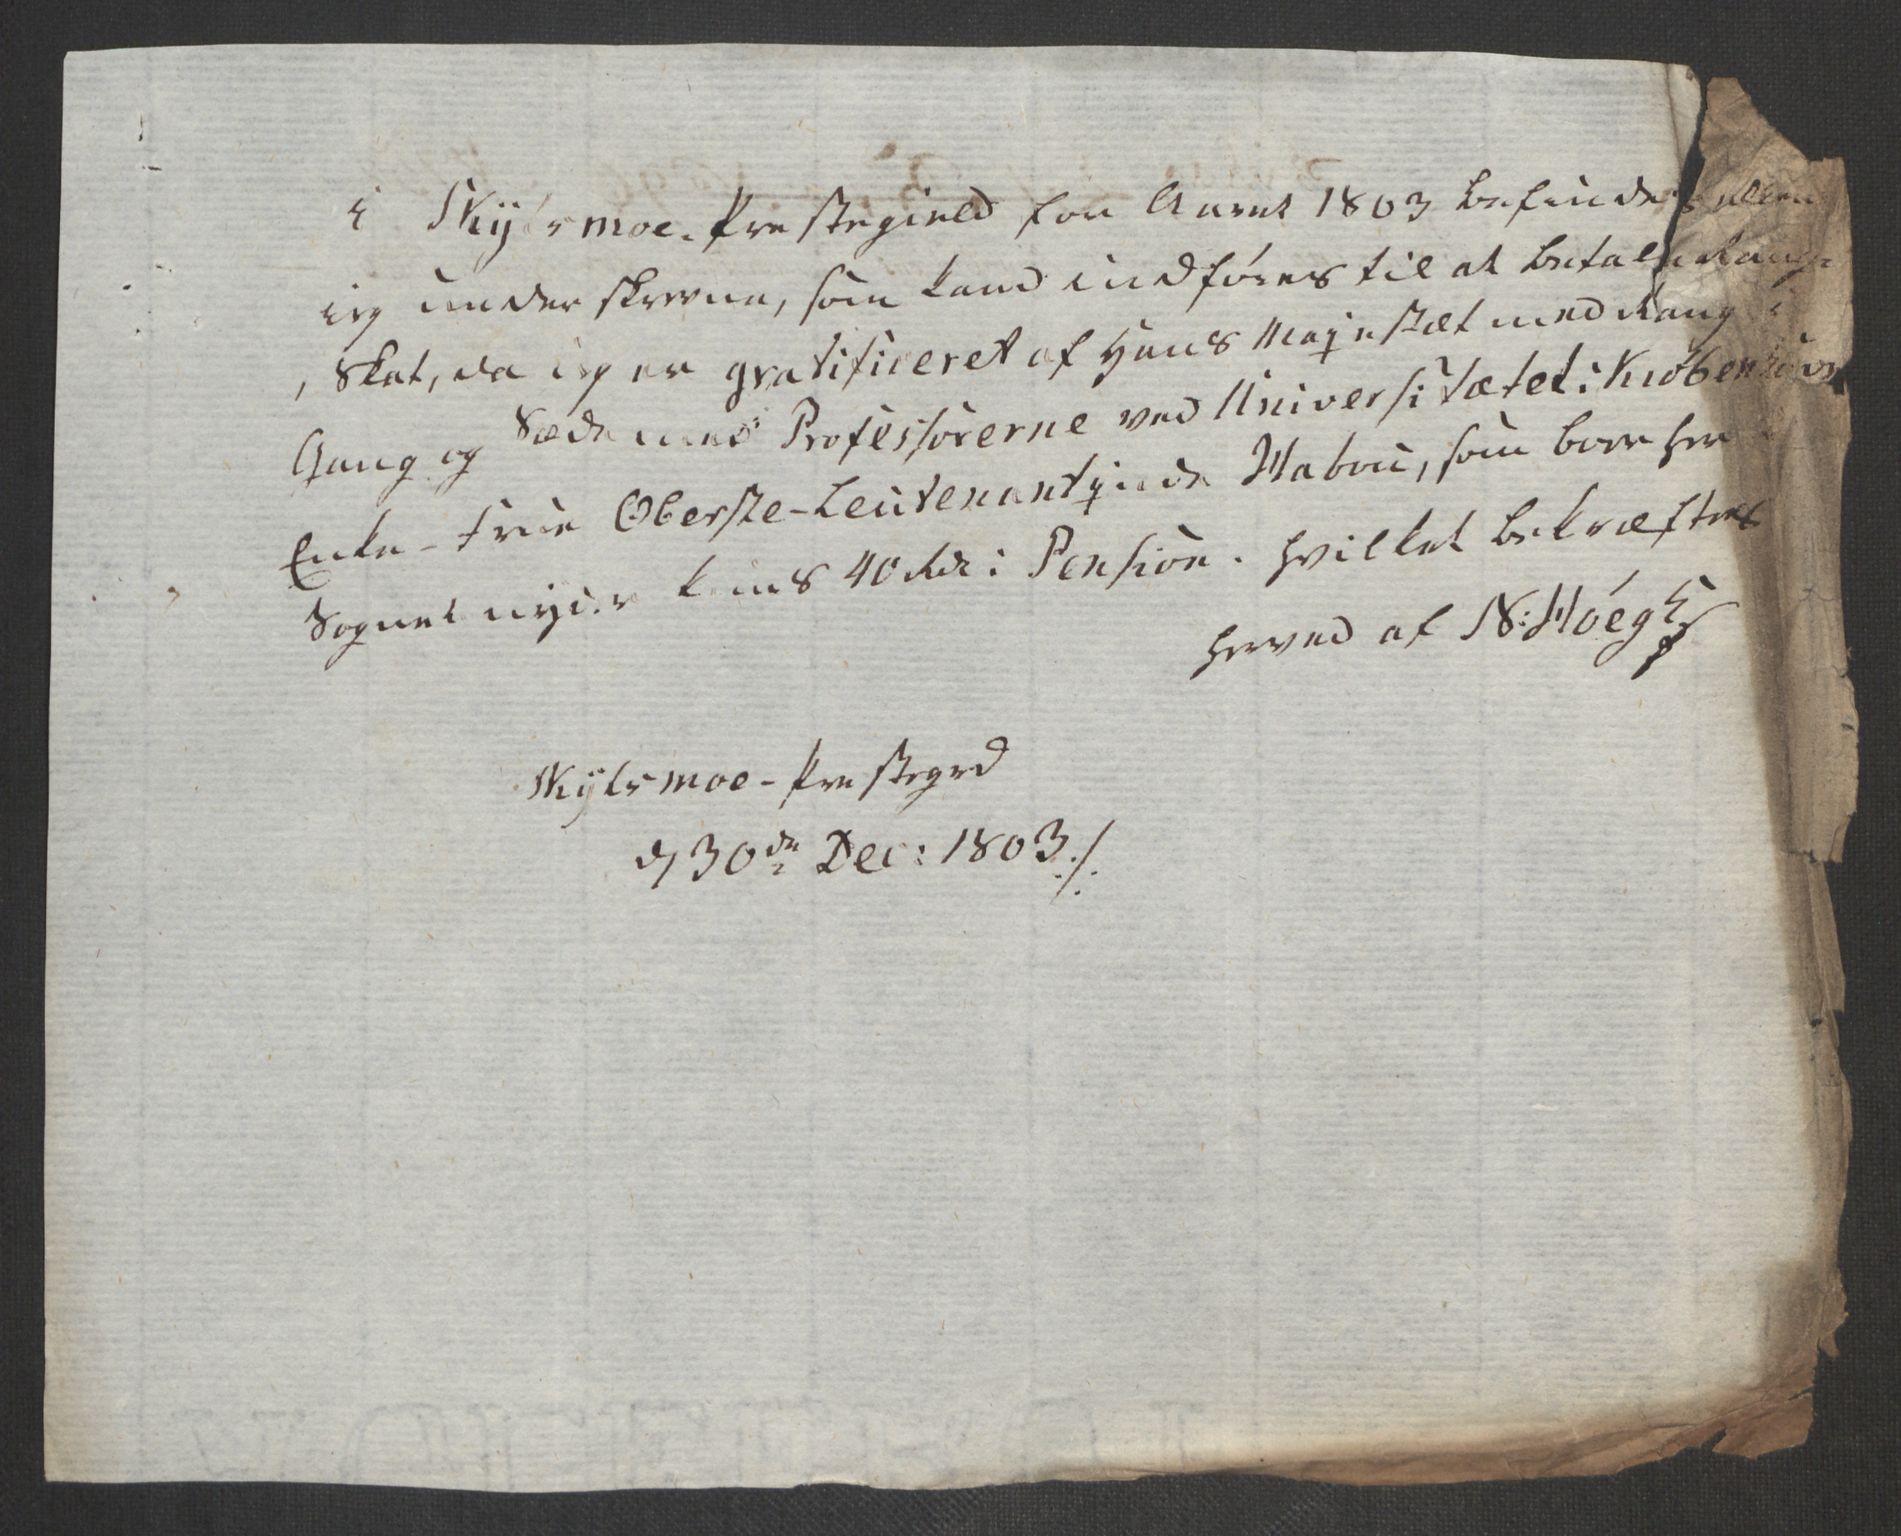 i Skylsmoe-Præstegield for Aaret 1803 befindes alene
ieg underskrevne, som kand indføres til at betale Rang-
Skat, da ieg er gratificeret af Hans Majestæt med Rang
Gang og Sæde med Professorerne ved Universitætet i Kiøbenhavn
Enke-Frue Oberste-Leutenantjnde Mabou, som boer her i
Sognet nyder kuns 40 Rdr i Pension. Hvilket bekræftes
herved af N: Høegh
Skylsmoe-Præstegrd
d 30de Dec: 1803./.